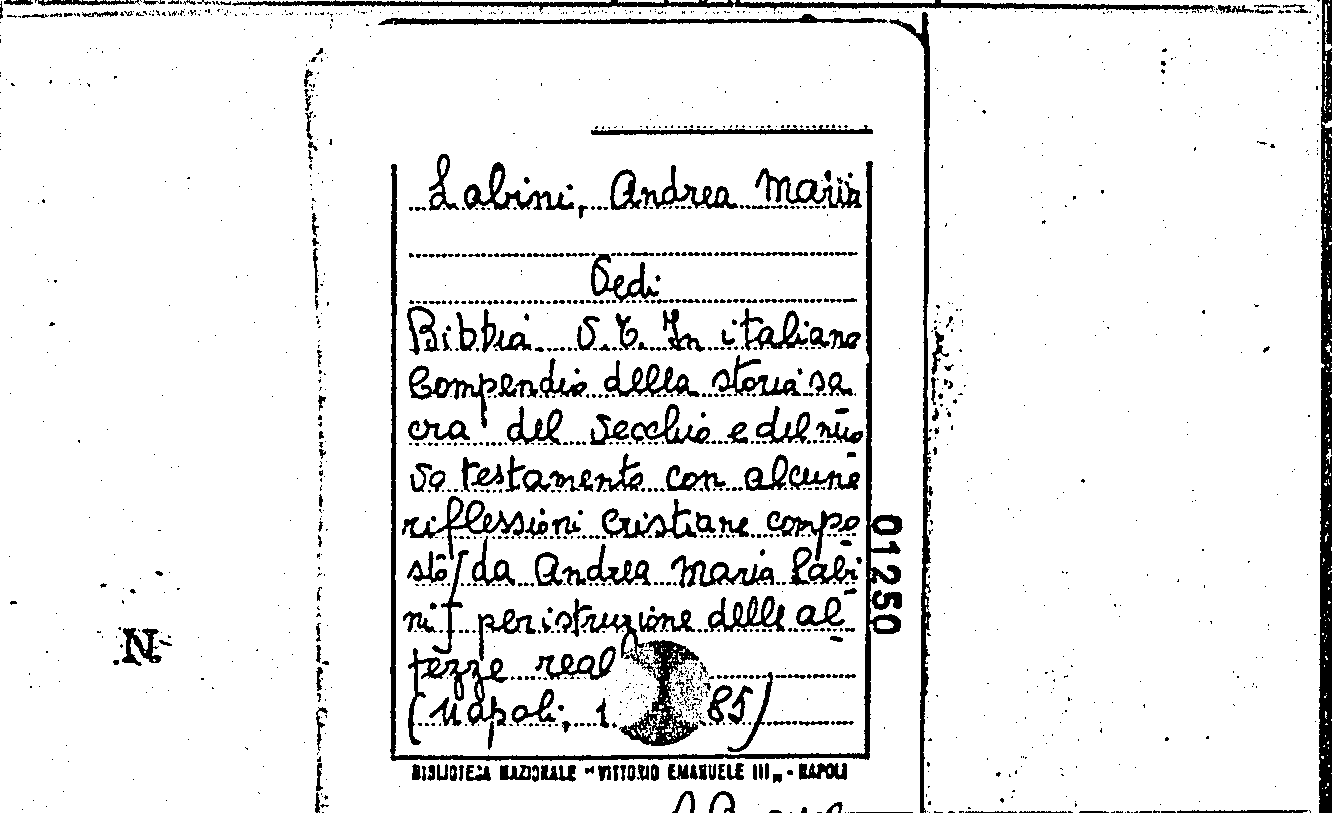 Labini, Andrea Maria
Vedi
Bibbia V.T. In italiano
Compendio della storia sa
cra del vecchio e del nuo
vo testamento con alcune
riflessioni cristiane compo
sto [da Andrea Maria Labi
ni] per istruzione delle al
tezze real
(Napoli, 1 85)
BIBLIOTECA NAZIONALE "VITTORIO EMANUELE III„ - NAPOLI
01250
N